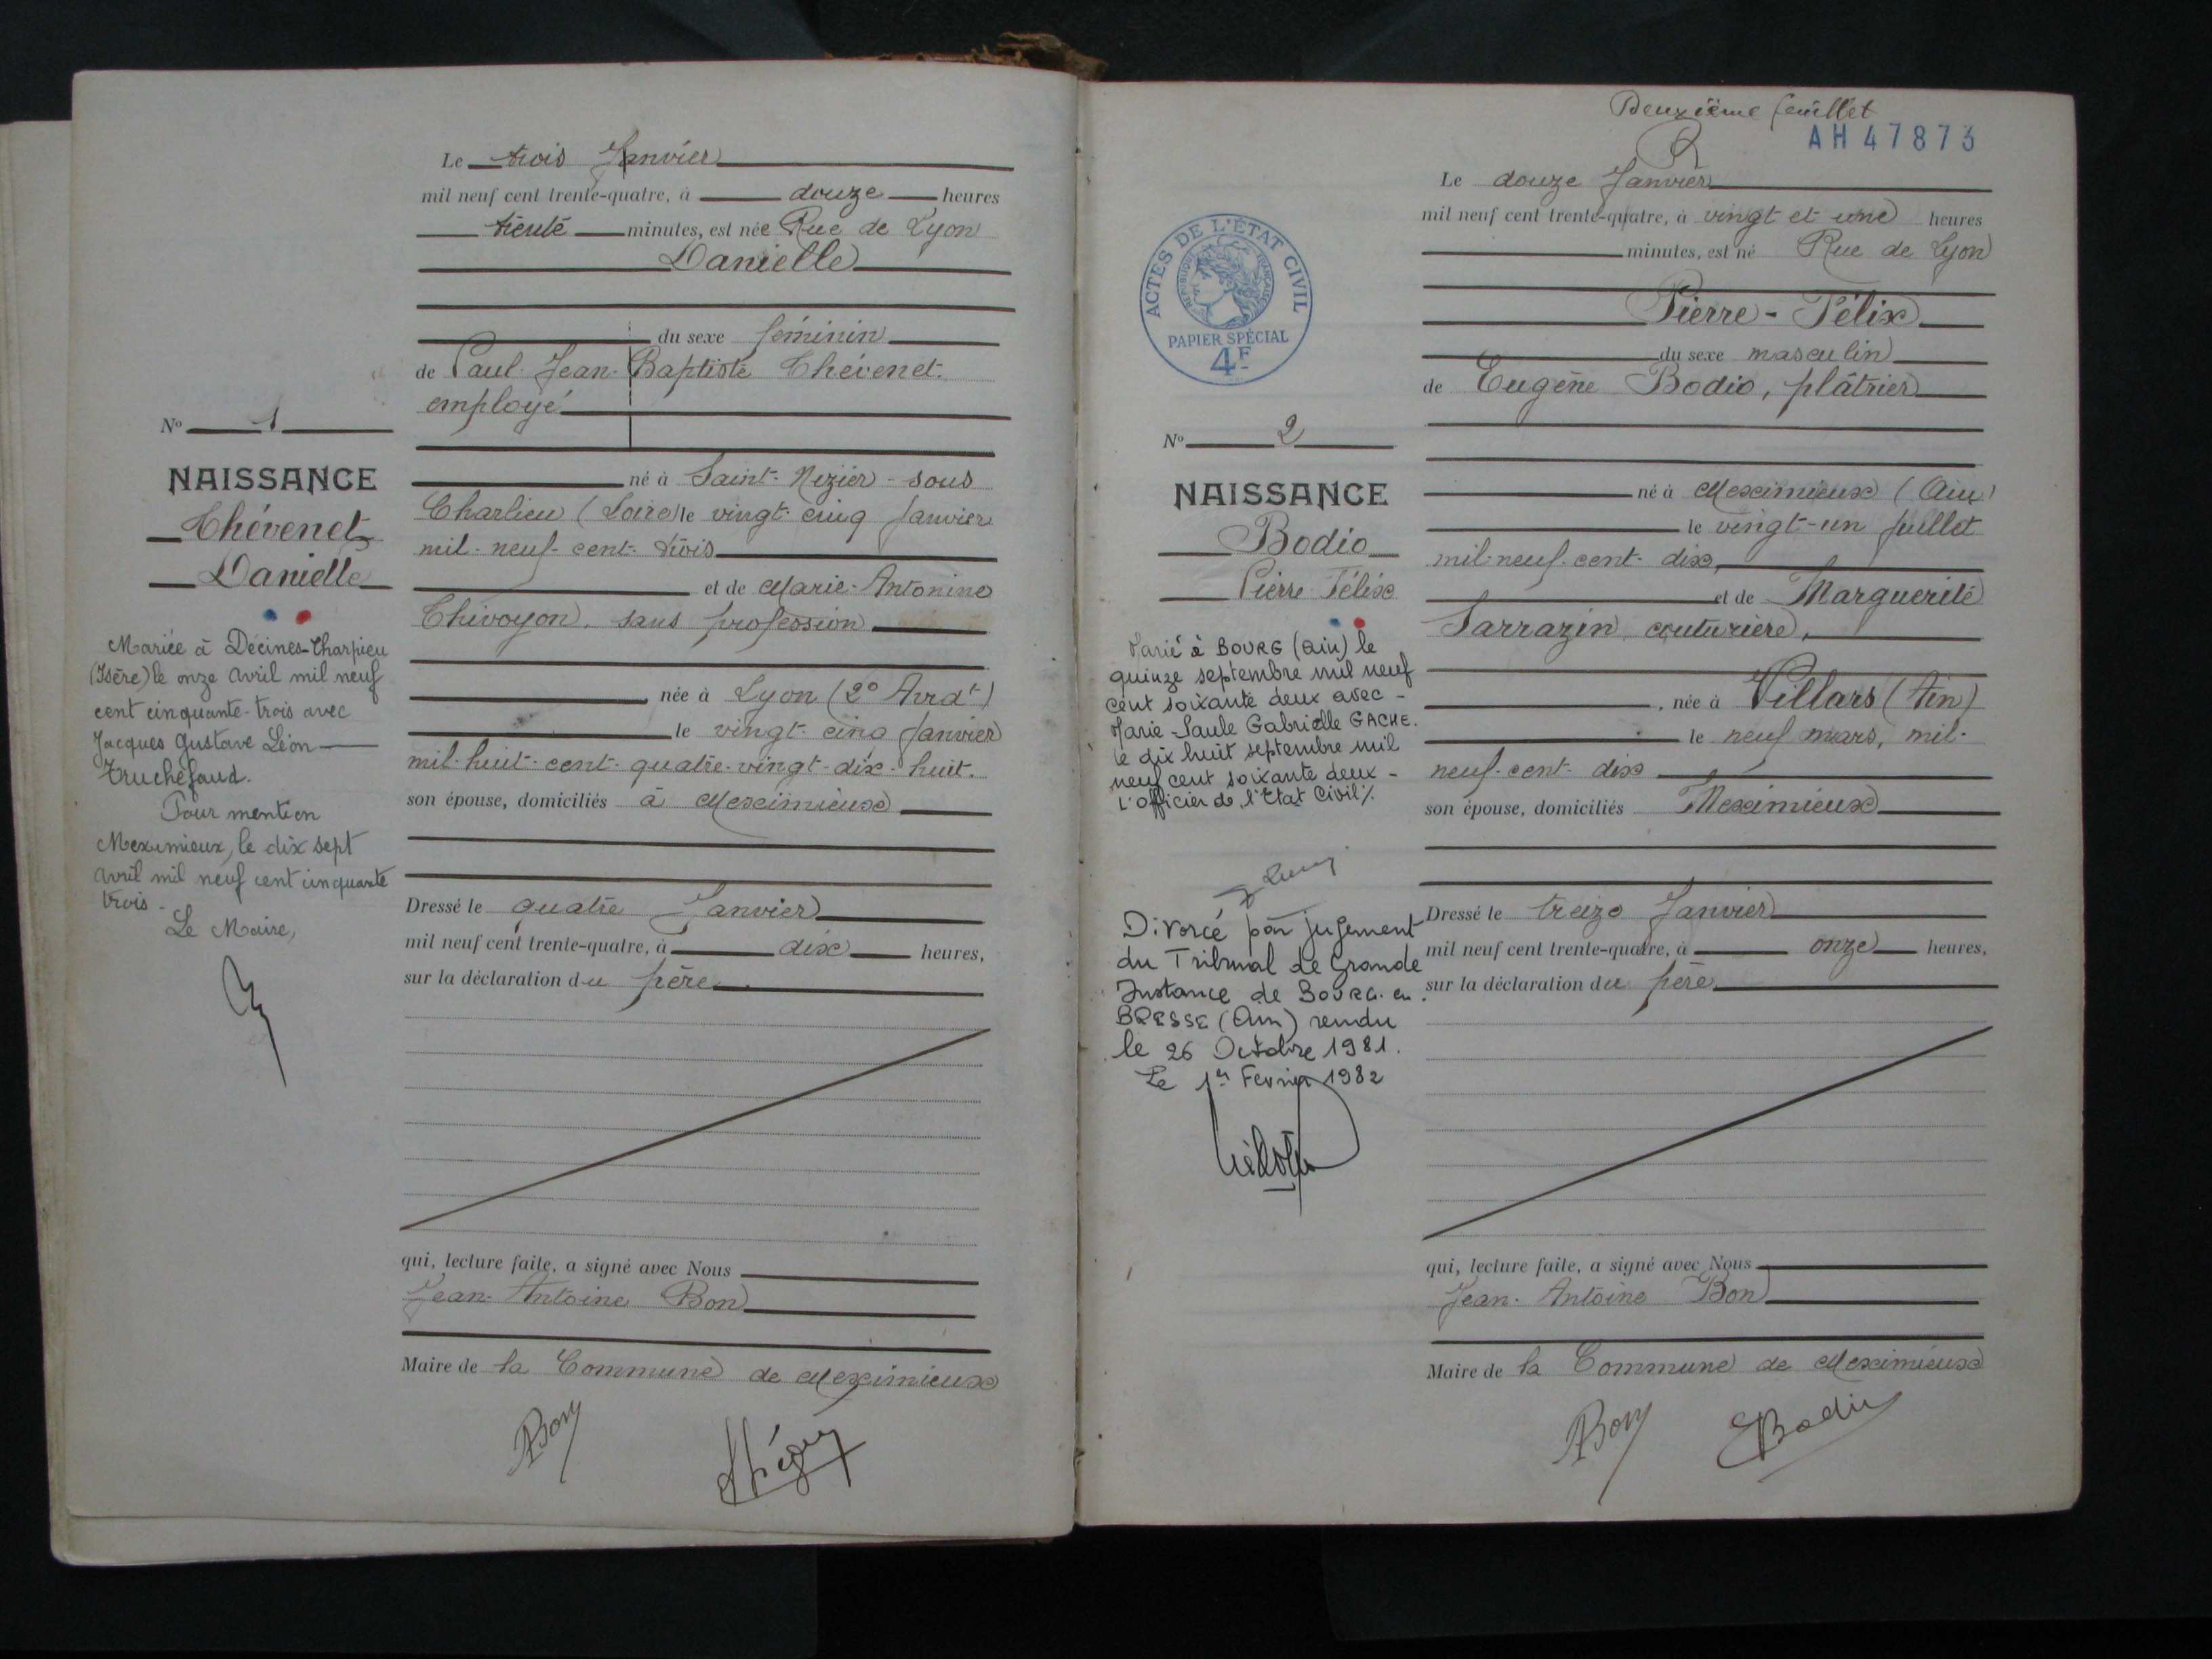 Le trois Janvier
mil neuf cent trente-quatre, à douze heures
trente minutes, est née Rue de Lyon
Danielle
du sexe féminin
de Paul Jean-Baptiste Thévenet
employé
né à Saint-Nizier-sous
Charlieu (Loire) le vingt-cinq Janvier
mil-neuf-cent-trois
et de Marie-Antonine
Chivoyon, sans profession
née à Lyon (2e Arrdt)
le vingt-cinq Janvier
mil-huit-cent-quatre-vingt-dix-huit.
son épouse, domiciliés à Meximieux
Dressé le quatre Janvier
mil neuf cent trente-quatre, à dix heures,
sur la déclaration du père
qui, lecture faite, a signé avec Nous
Jean-Antoine Bon
Maire de la Commune de Meximieux
Bon
No 1
NAISSANCE
Thévenet
Danielle
Mariée à Décines-Charpieu
(Isère) le onze avril mil neuf
cent cinquante-trois avec
Jacques Gustave Léon
Truchefaud.
Pour mention
Meximieux, le dix sept
avril mil neuf cent cinquante
trois.
Le Maire,
Deuxième feuillet
AH47873
Le douze Janvier
mil neuf cent trente-quatre, à vingt et une heures
minutes, est né Rue de Lyon
Pierre-Félix
du sexe masculin
de Eugène Bodio, plâtrier
né à Meximieux (Ain)
le vingt-un Juillet
mil-neuf-cent-dix,
et de Marguerite
Sarrazin, couturière,
, née à Villars (Ain)
le neuf mars, mil-
neuf-cent-dix
son épouse, domiciliés Meximieux
Dressé le treize Janvier
mil neuf cent trente-quatre, à onze heures,
sur la déclaration du père
qui, lecture faite, a signé avec Nous
Jean-Antoine Bon
Maire de la Commune de Meximieux
Bon EBodio
ACTES DE L'ÉTAT CIVIL
RÉPUBLIQUE FRANÇAISE
PAPIER SPÉCIAL
4F
No 2
NAISSANCE
Bodio
Pierre Félix
Marié à BOURG (Ain) le
quinze septembre mil neuf
cent soixante deux avec -
Marie-Paule Gabrielle GACHE.
le dix huit septembre mil
neuf cent soixante deux -
L'officier de l'Etat Civil %.
Divorcé par jugement
du Tribunal de Grande
Instance de BOURG. en.
BRESSE (Ain) rendu
le 26 Octobre 1981.
Le 1er Fevrier 1982